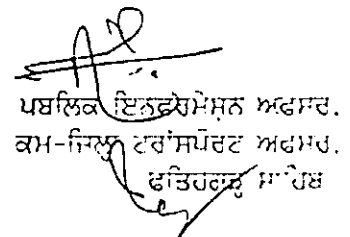 ਪਬਲਿਕ ਇਨਫਰਮੇਸ਼ਨ ਅਫਸਰ.
ਕਮ-ਜਿਲ੍ਹਾ ਟਰਾਂਸਪੋਰਟ ਅਫਸਰ.
ਫਤਿਹਗੜ੍ਹ ਸਾਹਿਬ